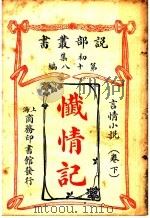 說部叢書
初集
第十八編
言情小說
（卷下）
懺情記
上海
商務印書館發行